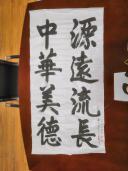 源遠流長
中華美德